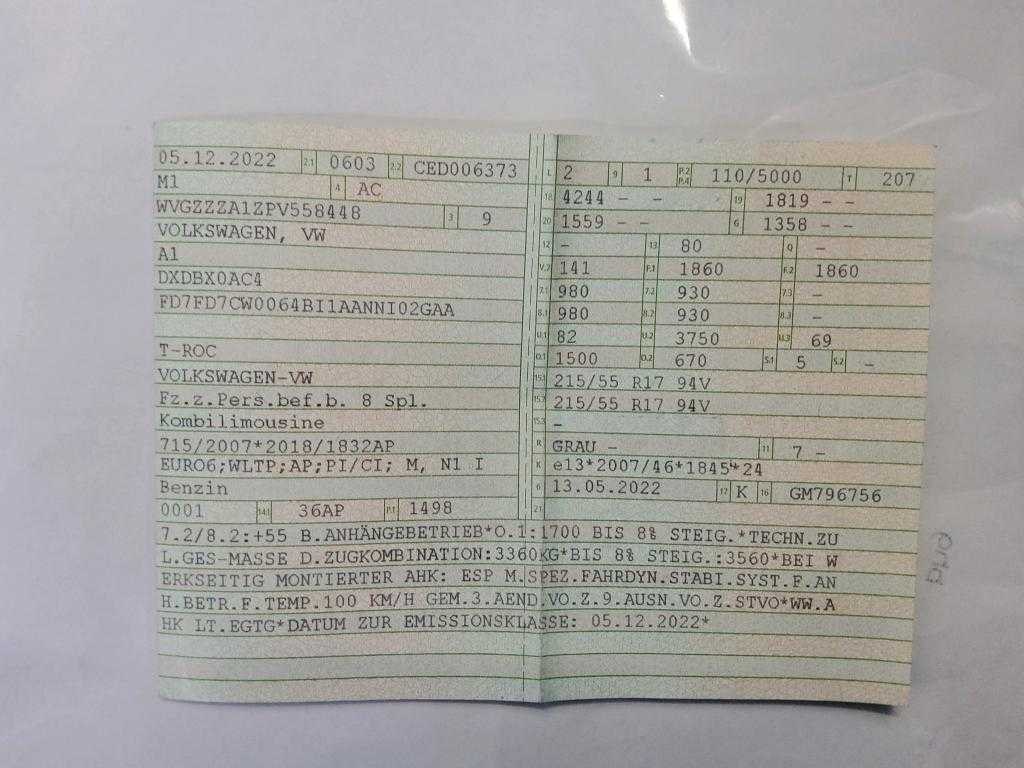 05.12.2022 2.1 0603 2.2 CED006373
M1 4 AC
WVGZZZA1ZPV558448 3 9
VOLKSWAGEN, VW
A1
DXDBX0AC4
FD7FD7CW0064BI1AANNI02GAA
T-ROC
VOLKSWAGEN-VW
Fz.z.Pers.bef.b. 8 Spl.
Kombilimousine
715/2007*2018/1832AP
EURO6;WLTP;AP;PI/CI; M, N1 I
Benzin
0001 14.1 36AP P.1 1498
L 2 9 1 P.2 P.4 110/5000 T 207
18 4244 - - 19 1819 - -
20 1559 - - G 1358 - -
12 - 13 80 Q -
V.7 141 F.1 1860 F.2 1860
7.1 980 7.2 930 7.3 -
8.1 980 8.2 930 8.3 -
U.1 82 U.2 3750 U.3 69
O.1 1500 O.2 670 S.1 5 S.2 -
15.1 215/55 R17 94V
15.2 215/55 R17 94V
15.3 -
R GRAU - 11 7 -
K e13*2007/46*1845*24
6 13.05.2022 17 K 16 GM796756
21
7.2/8.2:+55 B.ANHÄNGEBETRIEB*O.1:1700 BIS 8% STEIG.*TECHN.ZU
L.GES-MASSE D.ZUGKOMBINATION:3360KG*BIS 8% STEIG.:3560*BEI W
ERKSEITIG MONTIERTER AHK: ESP M.SPEZ.FAHRDYN.STABI.SYST.F.AN
H.BETR.F.TEMP.100 KM/H GEM.3.AEND.VO.Z.9.AUSN.VO.Z.STVO*WW.A
HK LT.EGTG*DATUM ZUR EMISSIONSKLASSE: 05.12.2022*